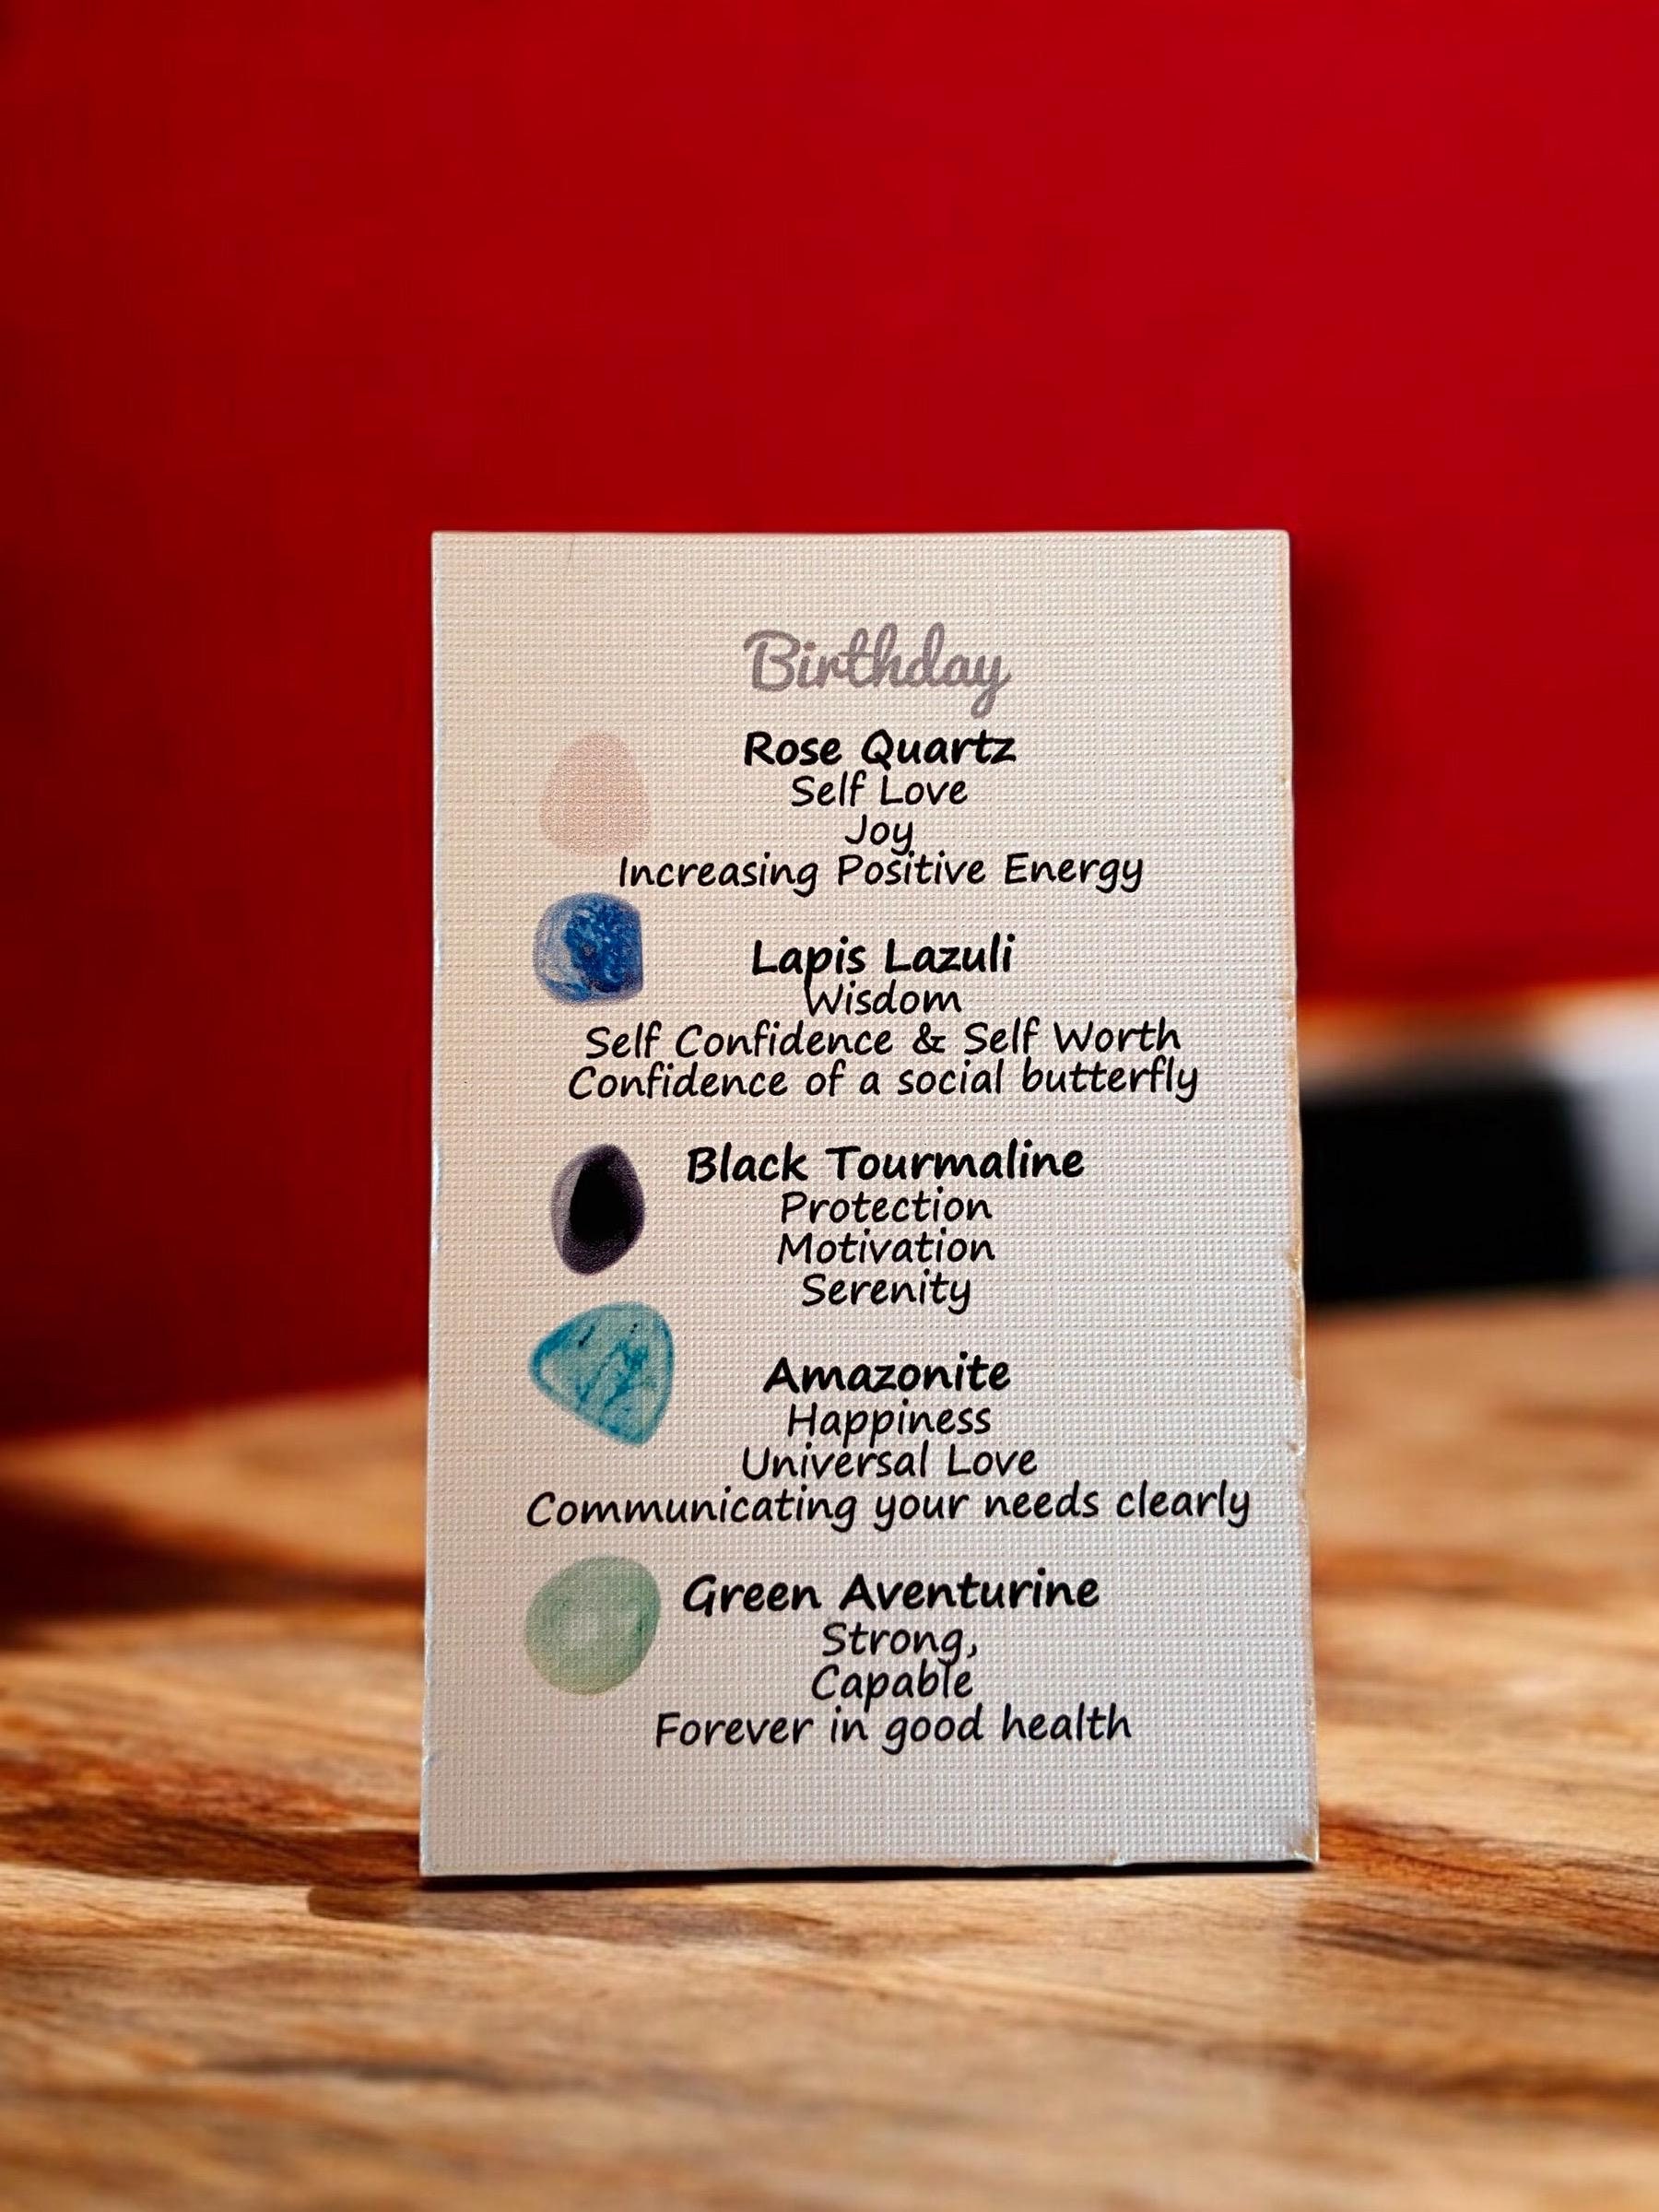 Birthday
Rose Quartz
Self Love
Joy
Increasing Positive Energy
Lapis Lazuli
Wisdom
Self Confidence & Self Worth
Confidence of a social butterfly
Black Tourmaline
Protection
Motivation
Serenity
Amazonite
Happiness
Universal Love
Communicating your needs clearly
Green Aventurine
Strong,
Capable
Forever in good health